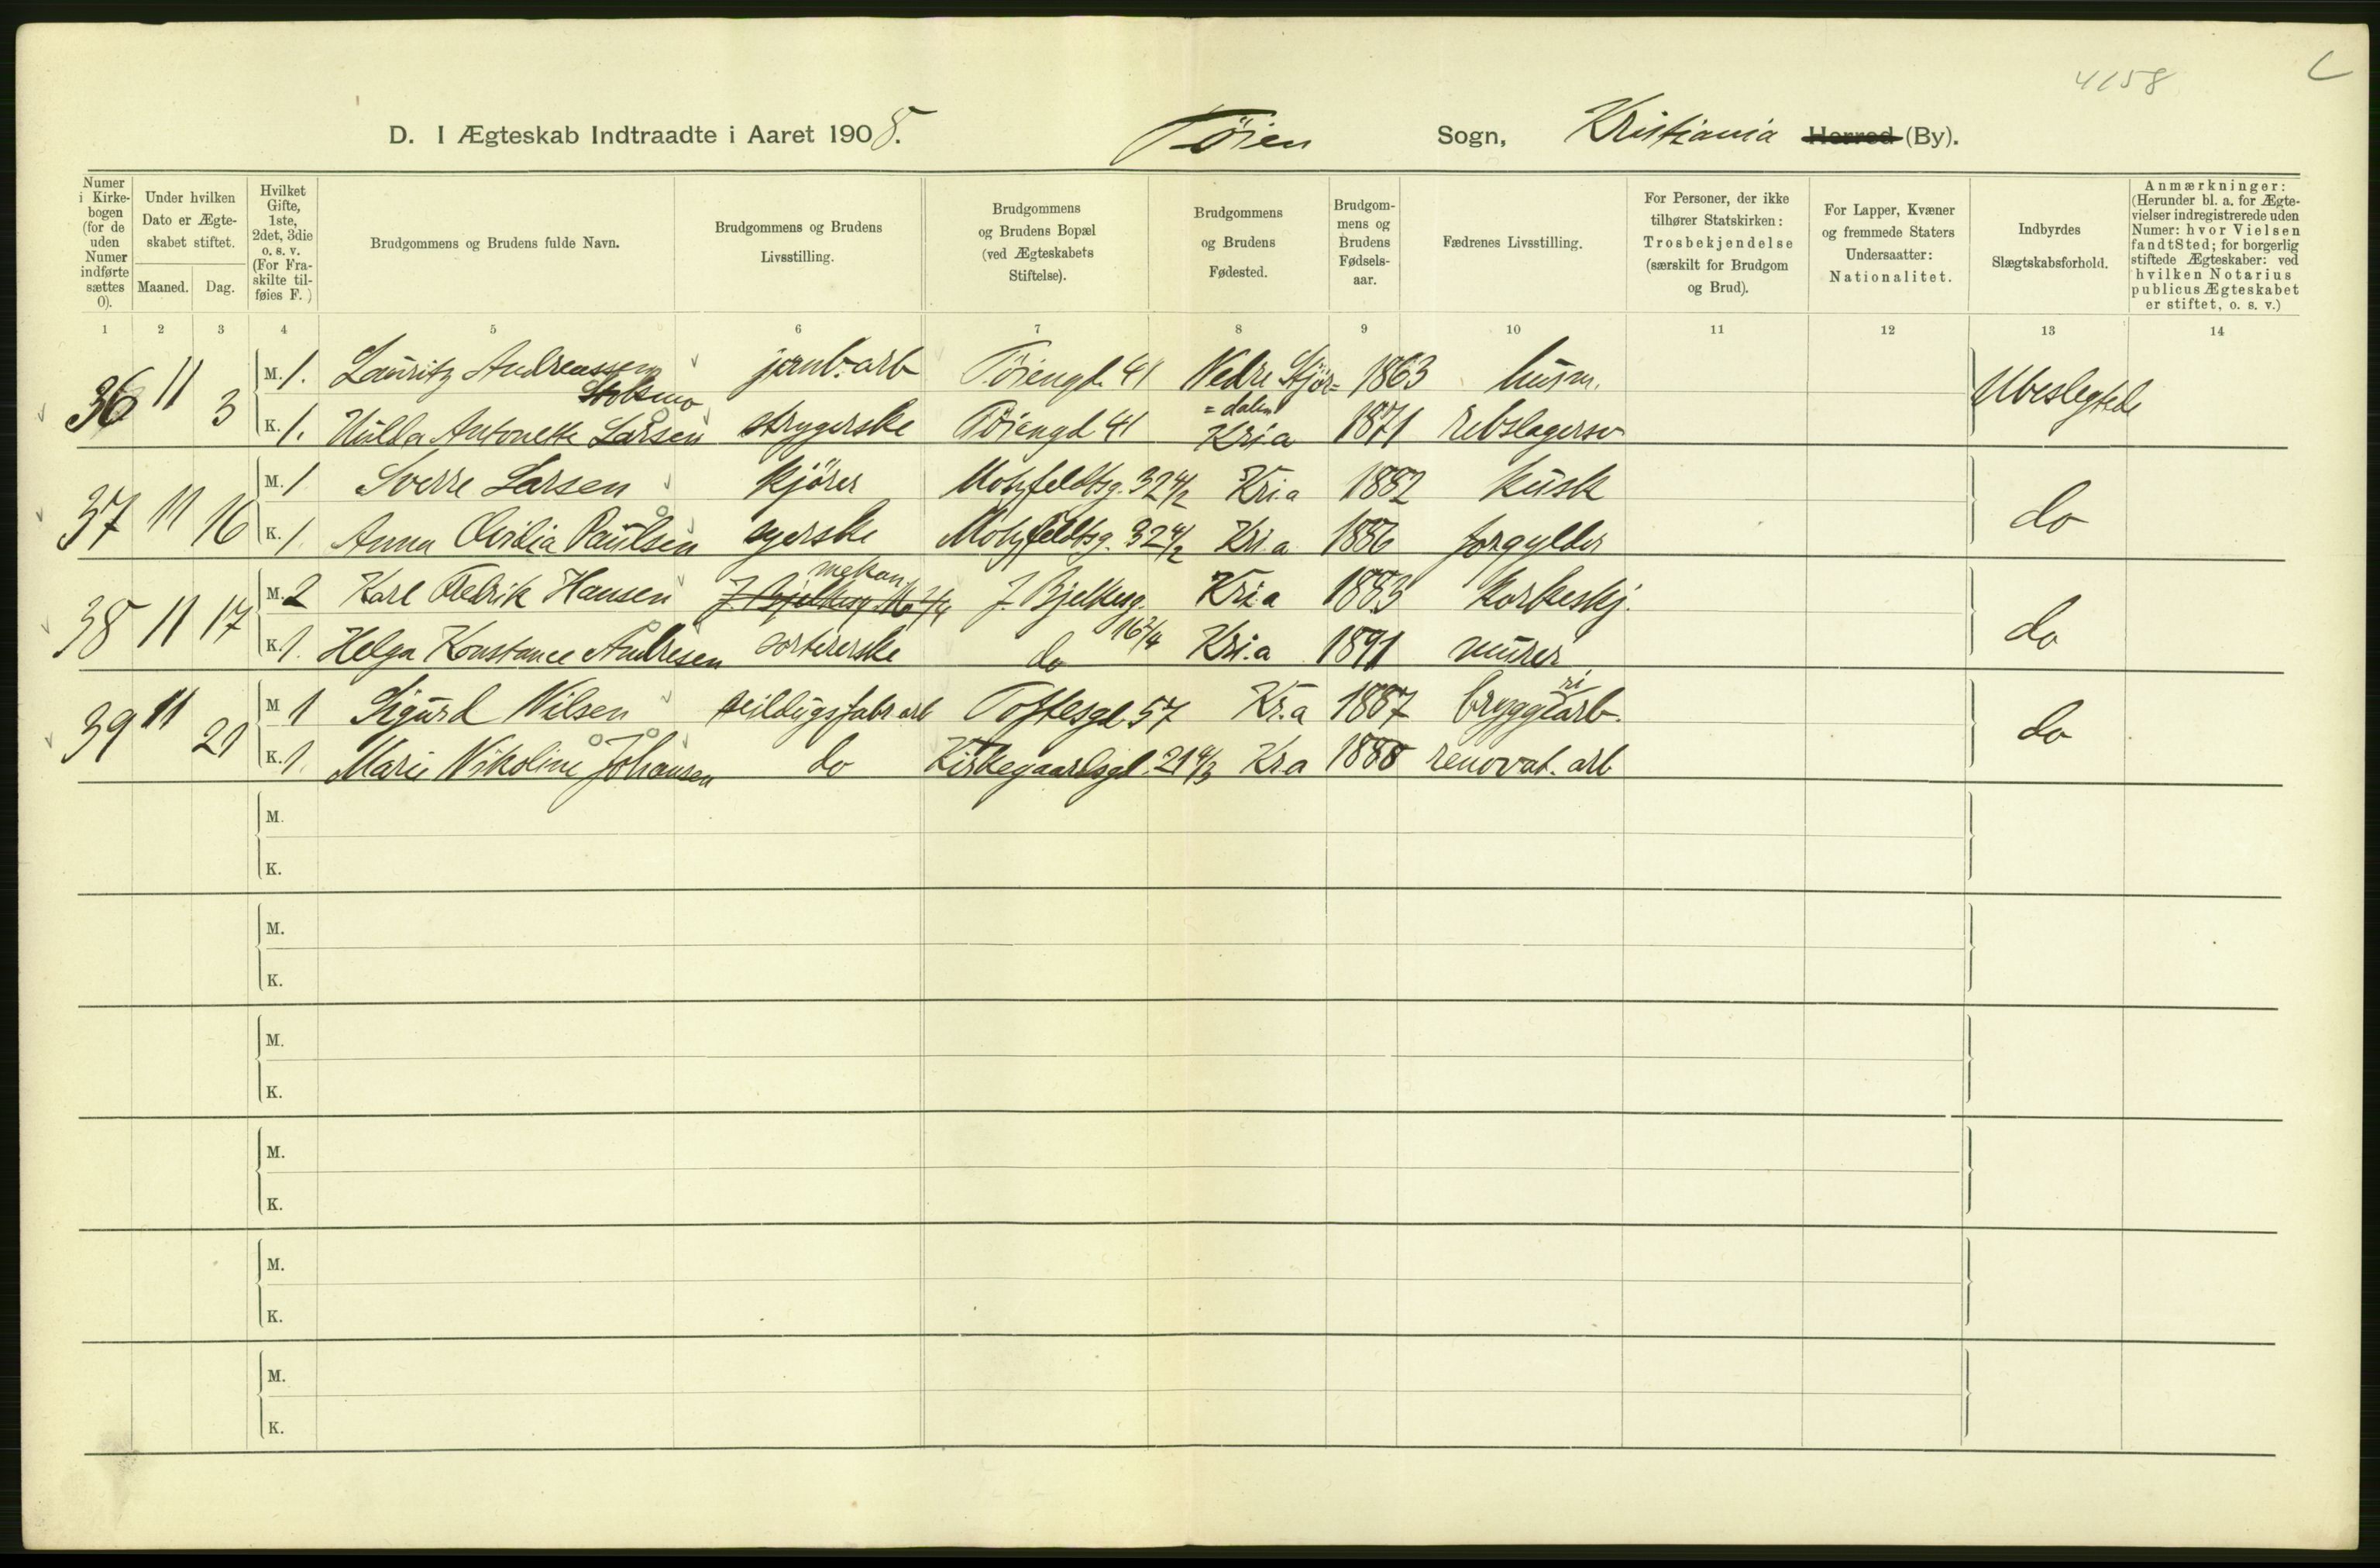 4158
D. I Ægteskab Indtraadte i Aaret 1908. Tøien Sogn, Kristiania Herred (By).
Numer i Kirkebogen (for de uden Numer indførte sættes 0).
Under hvilken Dato er Ægteskabet stiftet.
Maaned. Dag.
Hvilket Gifte, 1ste, 2det, 3die o. s. v. (For Fraskilte tilføies F.)
Brudgommens og Brudens fulde Navn.
Brudgommens og Brudens Livsstilling.
Brudgommens og Brudens Bopæl (ved Ægteskabets Stiftelse).
Brudgommens og Brudens Fødested.
Brudgommens og Brudens Fødselsaar.
Fædrenes Livsstilling.
For Personer, der ikke tilhører Statskirken: Trosbekjendelse (særskilt for Brudgom og Brud).
For Lapper, Kvæner og fremmede Staters Undersaatter: Nationalitet.
Indbyrdes Slægtskabsforhold.
Anmærkninger: (Herunder bl. a. for Ægtevielser indregistrerede uden Numer: hvor Vielsen fandt Sted; for borgerlig stiftede Ægteskaber: ved hvilken Notarius publicus Ægteskabet er stiftet, o. s. v.)
1 2 3 4 5 6 7 8 9 10 11 12 13 14
36 11 3 M. 1. Lauritz Andreassen Stobsmo jernb. arb Tøiengd. 41 Nedre Stjør=dalen 1863 husm. Ubeslegtede
K. 1. Hulda Antonette Larsen strygerske Tøiengd 41 Kria 1871 rebslagersv
37 11 16 M. 1 Sverre Larsen kjører Motzfeldtsg. 32 4/2 Kria 1882 kusk do
K. 1. Anna Ovidia Paulsen syerske Motzfeldtsg. 32 4/2 Kria 1886 forgylder
38 11 17 M. 2 Karl Fredrik Hansen J. Bjelkesg. 16 2/4 mekan. J. Bjelkesg. 16 2/4 Kria 1883 korkeskj. do
K. 1. Helga Konstance Andresen sortererske do Kria 1891 murer
39 11 21 M 1 Sigurd Nilsen seildugsfabr arb Toftesgd. 57 Kr.a 1887 bryggeriarb. do
K. 1. Marie Nikoline Johansen do Kirkegaardsgd. 21 4/3 Kra 1888 renovat. arb
M.
K.
M.
K.
M.
K.
M.
K.
M.
K.
M.
K.